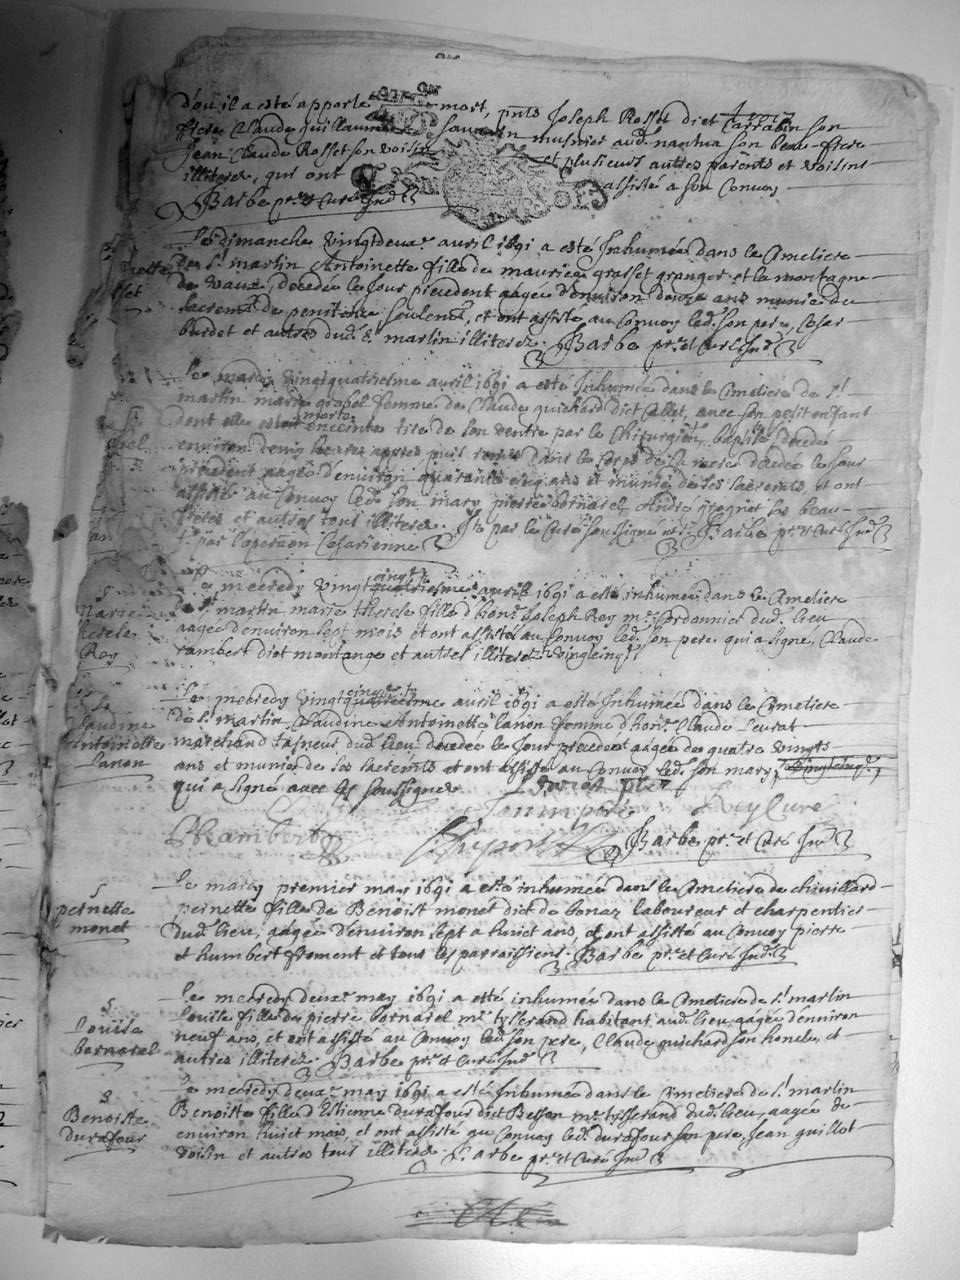 d'ou il a esté apporté mort, pnts Joseph Rosset dict Carrabin son
frere Claude Guillaume Savarin musnier aud. nantua son beau-frere
Jean Claude Rosset son voisin et plusieurs autres parents et voisins
illiterez, qui ont assisté a son Convoy
Barbe pr. et Curé Ind.
Le dimanche vingtdeux avril 1691 a esté Inhumée dans le Cmeliere
de St. martin Antoinette fille de maurice grasset granger et la montagne
de vaux, decedée le Jour precedent aagée d'environ douze ans munie du
sacremt. de penitence seulemt., et ont assisté au Convoy led. son pere, Cesar
burdet et autres dud. St. martin illiterez. Barbe pr. et Curé Ind.
Le mardy vingtquatriesme avril 1691 a esté Inhumée dans le Cmeliere de St.
martin marie grabel femme de Claude guichard dict Callet, avec son petit enfant
morte
dont elle estoit enceinte tiré de son ventre par le Chirurgien, baptisé decedé
environ demy heure apres puis remis dans le corps de la mere decedée le Jour
precedent aagée d'environ quarante cinq ans et munie de ses sacremts, et ont
assisté au Convoy led. son mary pierre bornarel André Josgnet ses beau-
freres et autres tous illiterez. par le Curé soussigné Barbe pr. et Curé Ind.
par l'operaon Cesarienne
cinq
Le mecredy vingt quatriesme avril 1691 a esté inhumée dans le Cmeliere
de St. martin marie therese fille d'hon. Joseph Roy me. Cordonnier dud. lieu
aagée d'environ sept mois et ont assisté au Convoy led. son pere qui a signé, Claude
rambert dict montange et autres illiterez vingtcinq
Marie
therese
Roy
cinq
Le mecredy vingt quatriesme avril 1691 a esté Inhumée dans le Cmeliere
de St. martin, Claudine Antoinette Lanon femme d'hon. Claude
marchand taneur dud. lieu decedée le Jour precedent aagée de quatre vingts
ans et munie de ses sacremts et ont assisté au Convoy led. son mary, vingtcinq
qui a signé avec les soussignez
Claudine
Antoinette
Lanon
Roy Curé
Rambert
Barbe pr. et Curé Ind.
Le mardy premier may 1691 a esté inhumée dans le Cmeliere de chevillard
pernette fille de Benoist monet dict de bonaz laboureur et charpentier
dud. lieu, aagée d'environ sept a huict ans, et ont assisté au Convoy pierre
et humbert froment et tous les parroissiens. Barbe pr. et Curé Ind.
pernette
monet
Le mecredy deux may 1691 a esté inhumée dans le Cmeliere de St. martin
Louise fille de pierre bornarel me. tysserand habitant aud. lieu, aagée d'environ
neuf ans, et ont assisté au Convoy led. son pere, Claude guichard son honcle, et
autres illiterez. Barbe pr. et Curé Ind.
Louise
bornarel
Le mecredy deux may 1691 a esté Inhumée dans le Cmeliere de St. martin
Benoiste fille d'Estienne durafour dict Besson me. tysserand dud. lieu, aagée de
environ huict mois, et ont assisté au Convoy led. durafour son pere, Jean guillot
voisin et autres tous illiterez. Barbe pr. et Curé Ind.
Benoiste
durafour